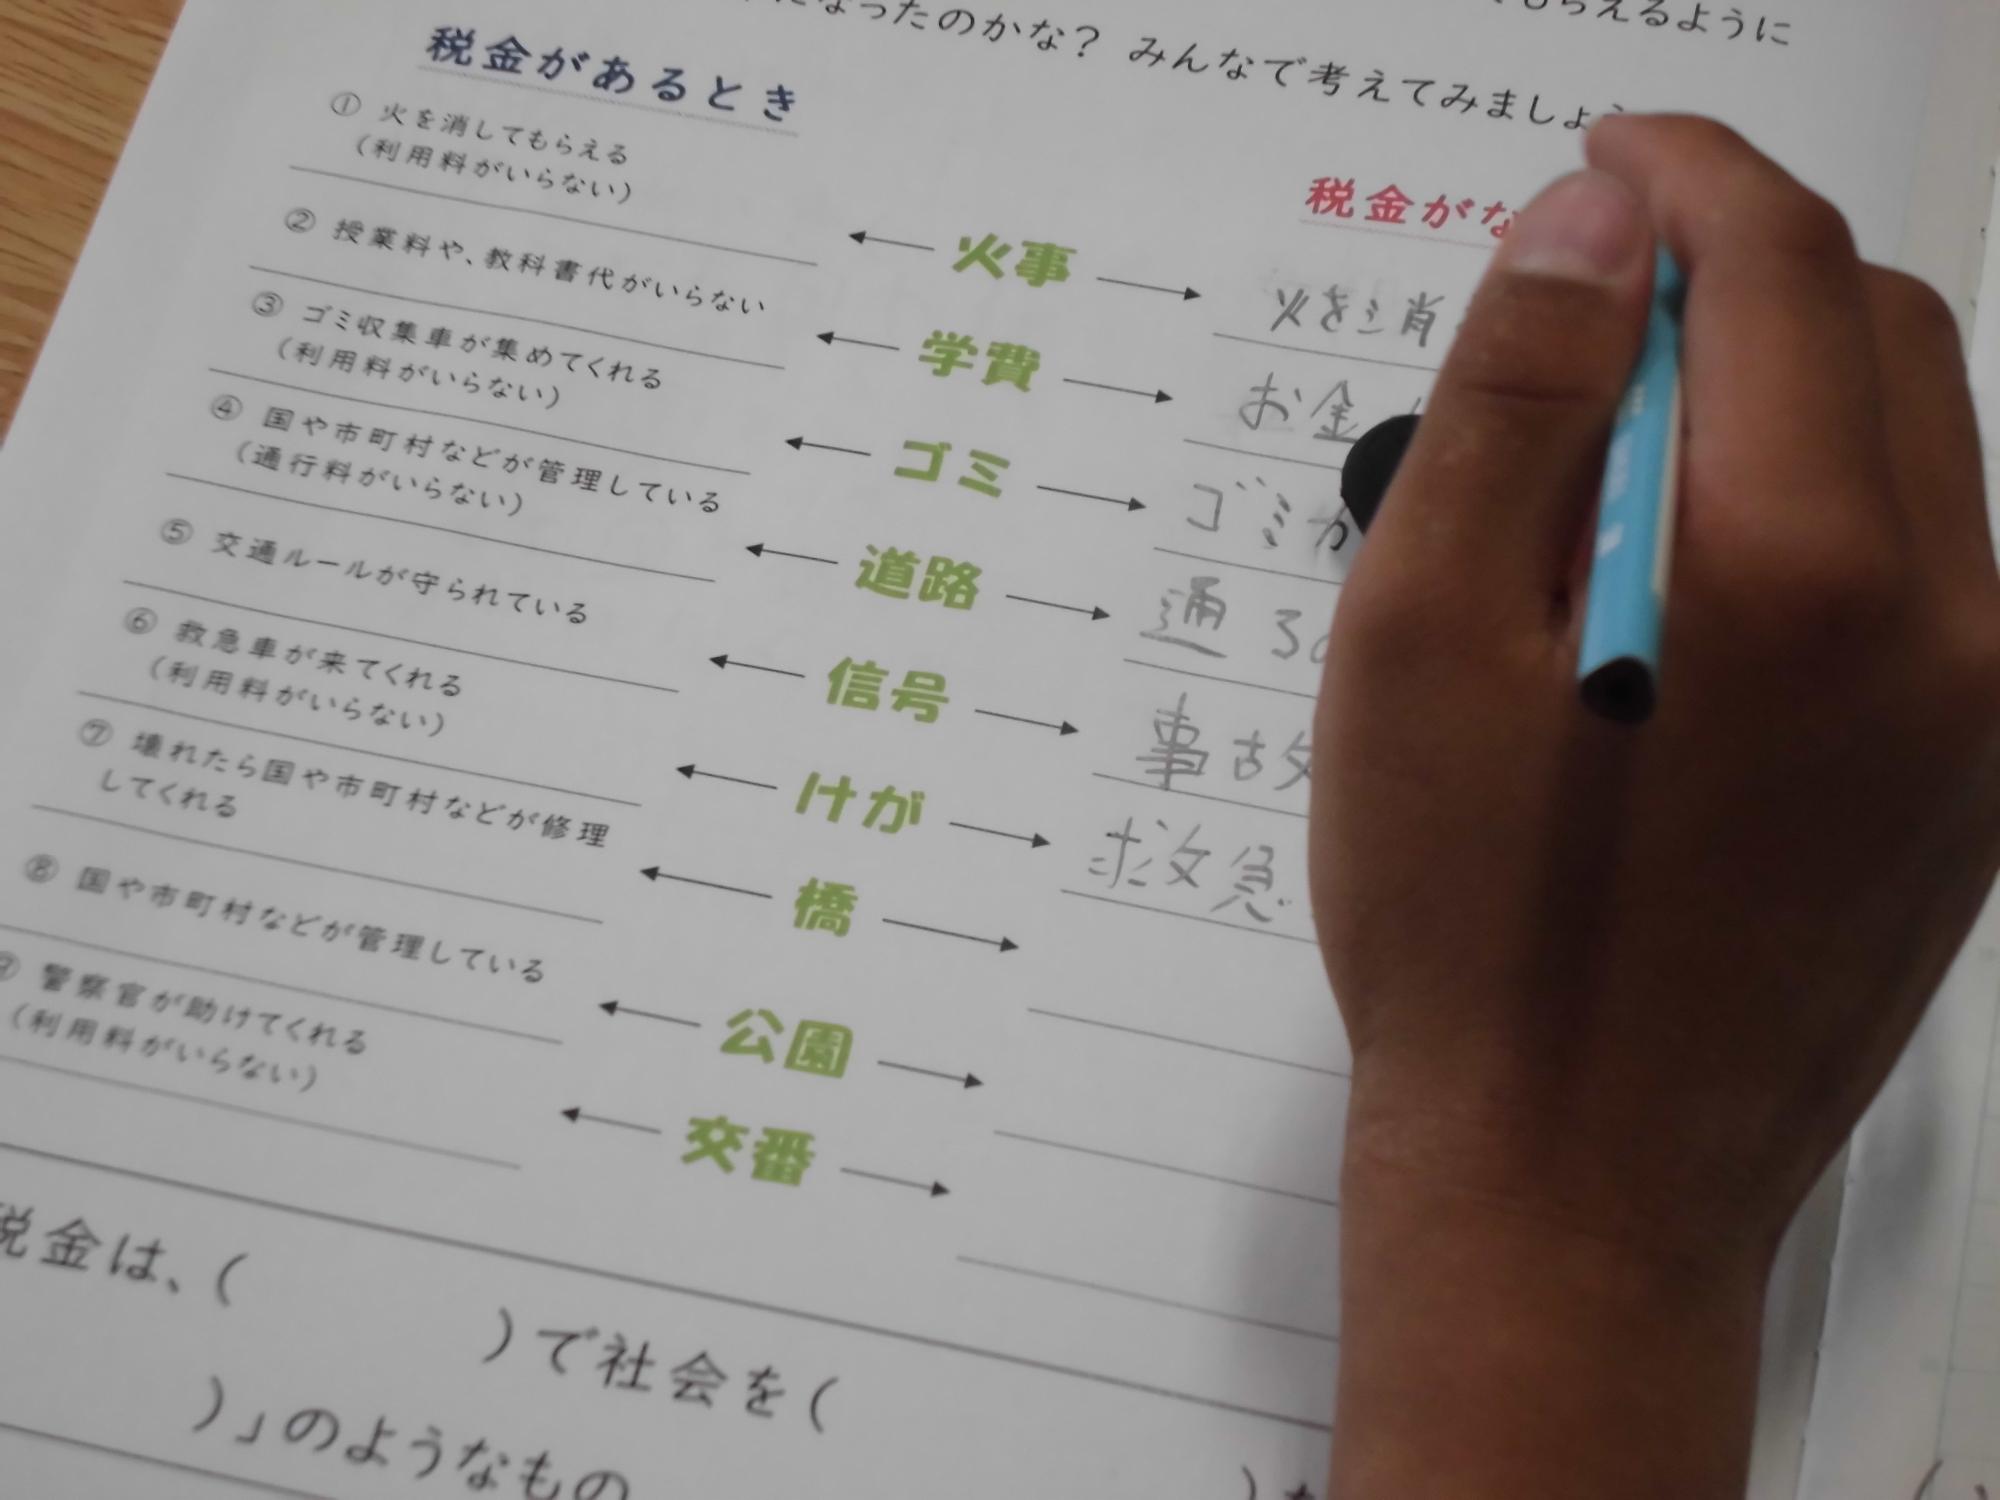 になったのかな? みんなで考えてみましょう
もらえるように
税金があるとき
① 火を消してもらえる
(利用料がいらない)
② 授業料や、教科書代がいらない
③ ゴミ収集車が集めてくれる
(利用料がいらない)
④ 国や市町村などが管理している
(通行料がいらない)
⑤ 交通ルールが守られている
⑥ 救急車が来てくれる
(利用料がいらない)
⑦ 壊れたら国や市町村などが修理
してくれる
⑧ 国や市町村などが管理している
⑨ 警察官が助けてくれる
(利用料がいらない)
火事
学費
ゴミ
道路
信号
けが
橋
公園
交番
税金がな
火を消
お金
ゴミが
通るの
事故
救急
税金は、( )で社会を(
)」のようなもの